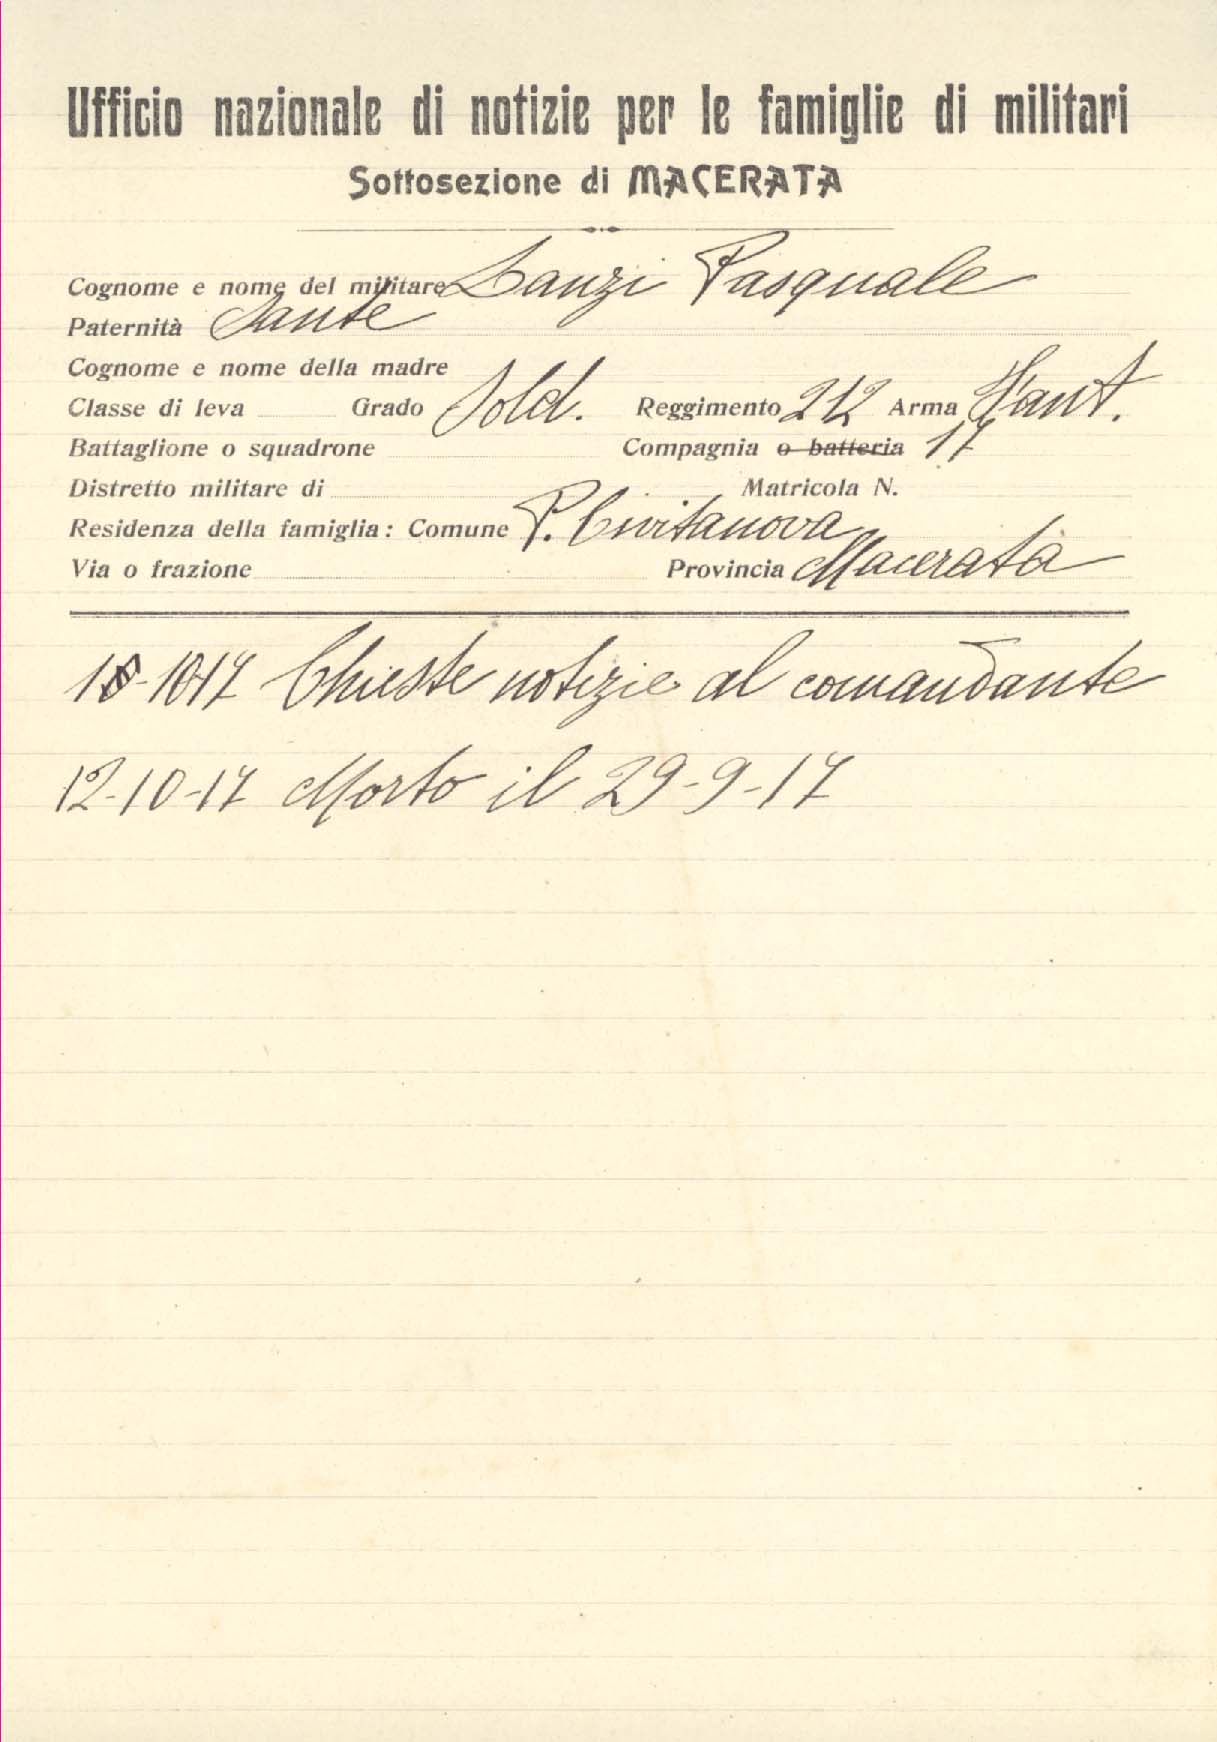 Ufficio nazionale di notizie per le famiglie di militari
Sottosezione di MACERATA
Cognome e nome del militare Lanzi Pasquale
Paternità Sante
Cognome e nome della madre
Classe di leva Grado Sold. Reggimento 212 Arma Fant.
Battaglione o squadrone Compagnia o batteria 17
Distretto militare di Matricola N.
Residenza della famiglia: Comune P. Civitanova
Via o frazione Provincia Macerata
-10-17 Chieste notizie al comandante
12-10-17 Morto il 29-9-17